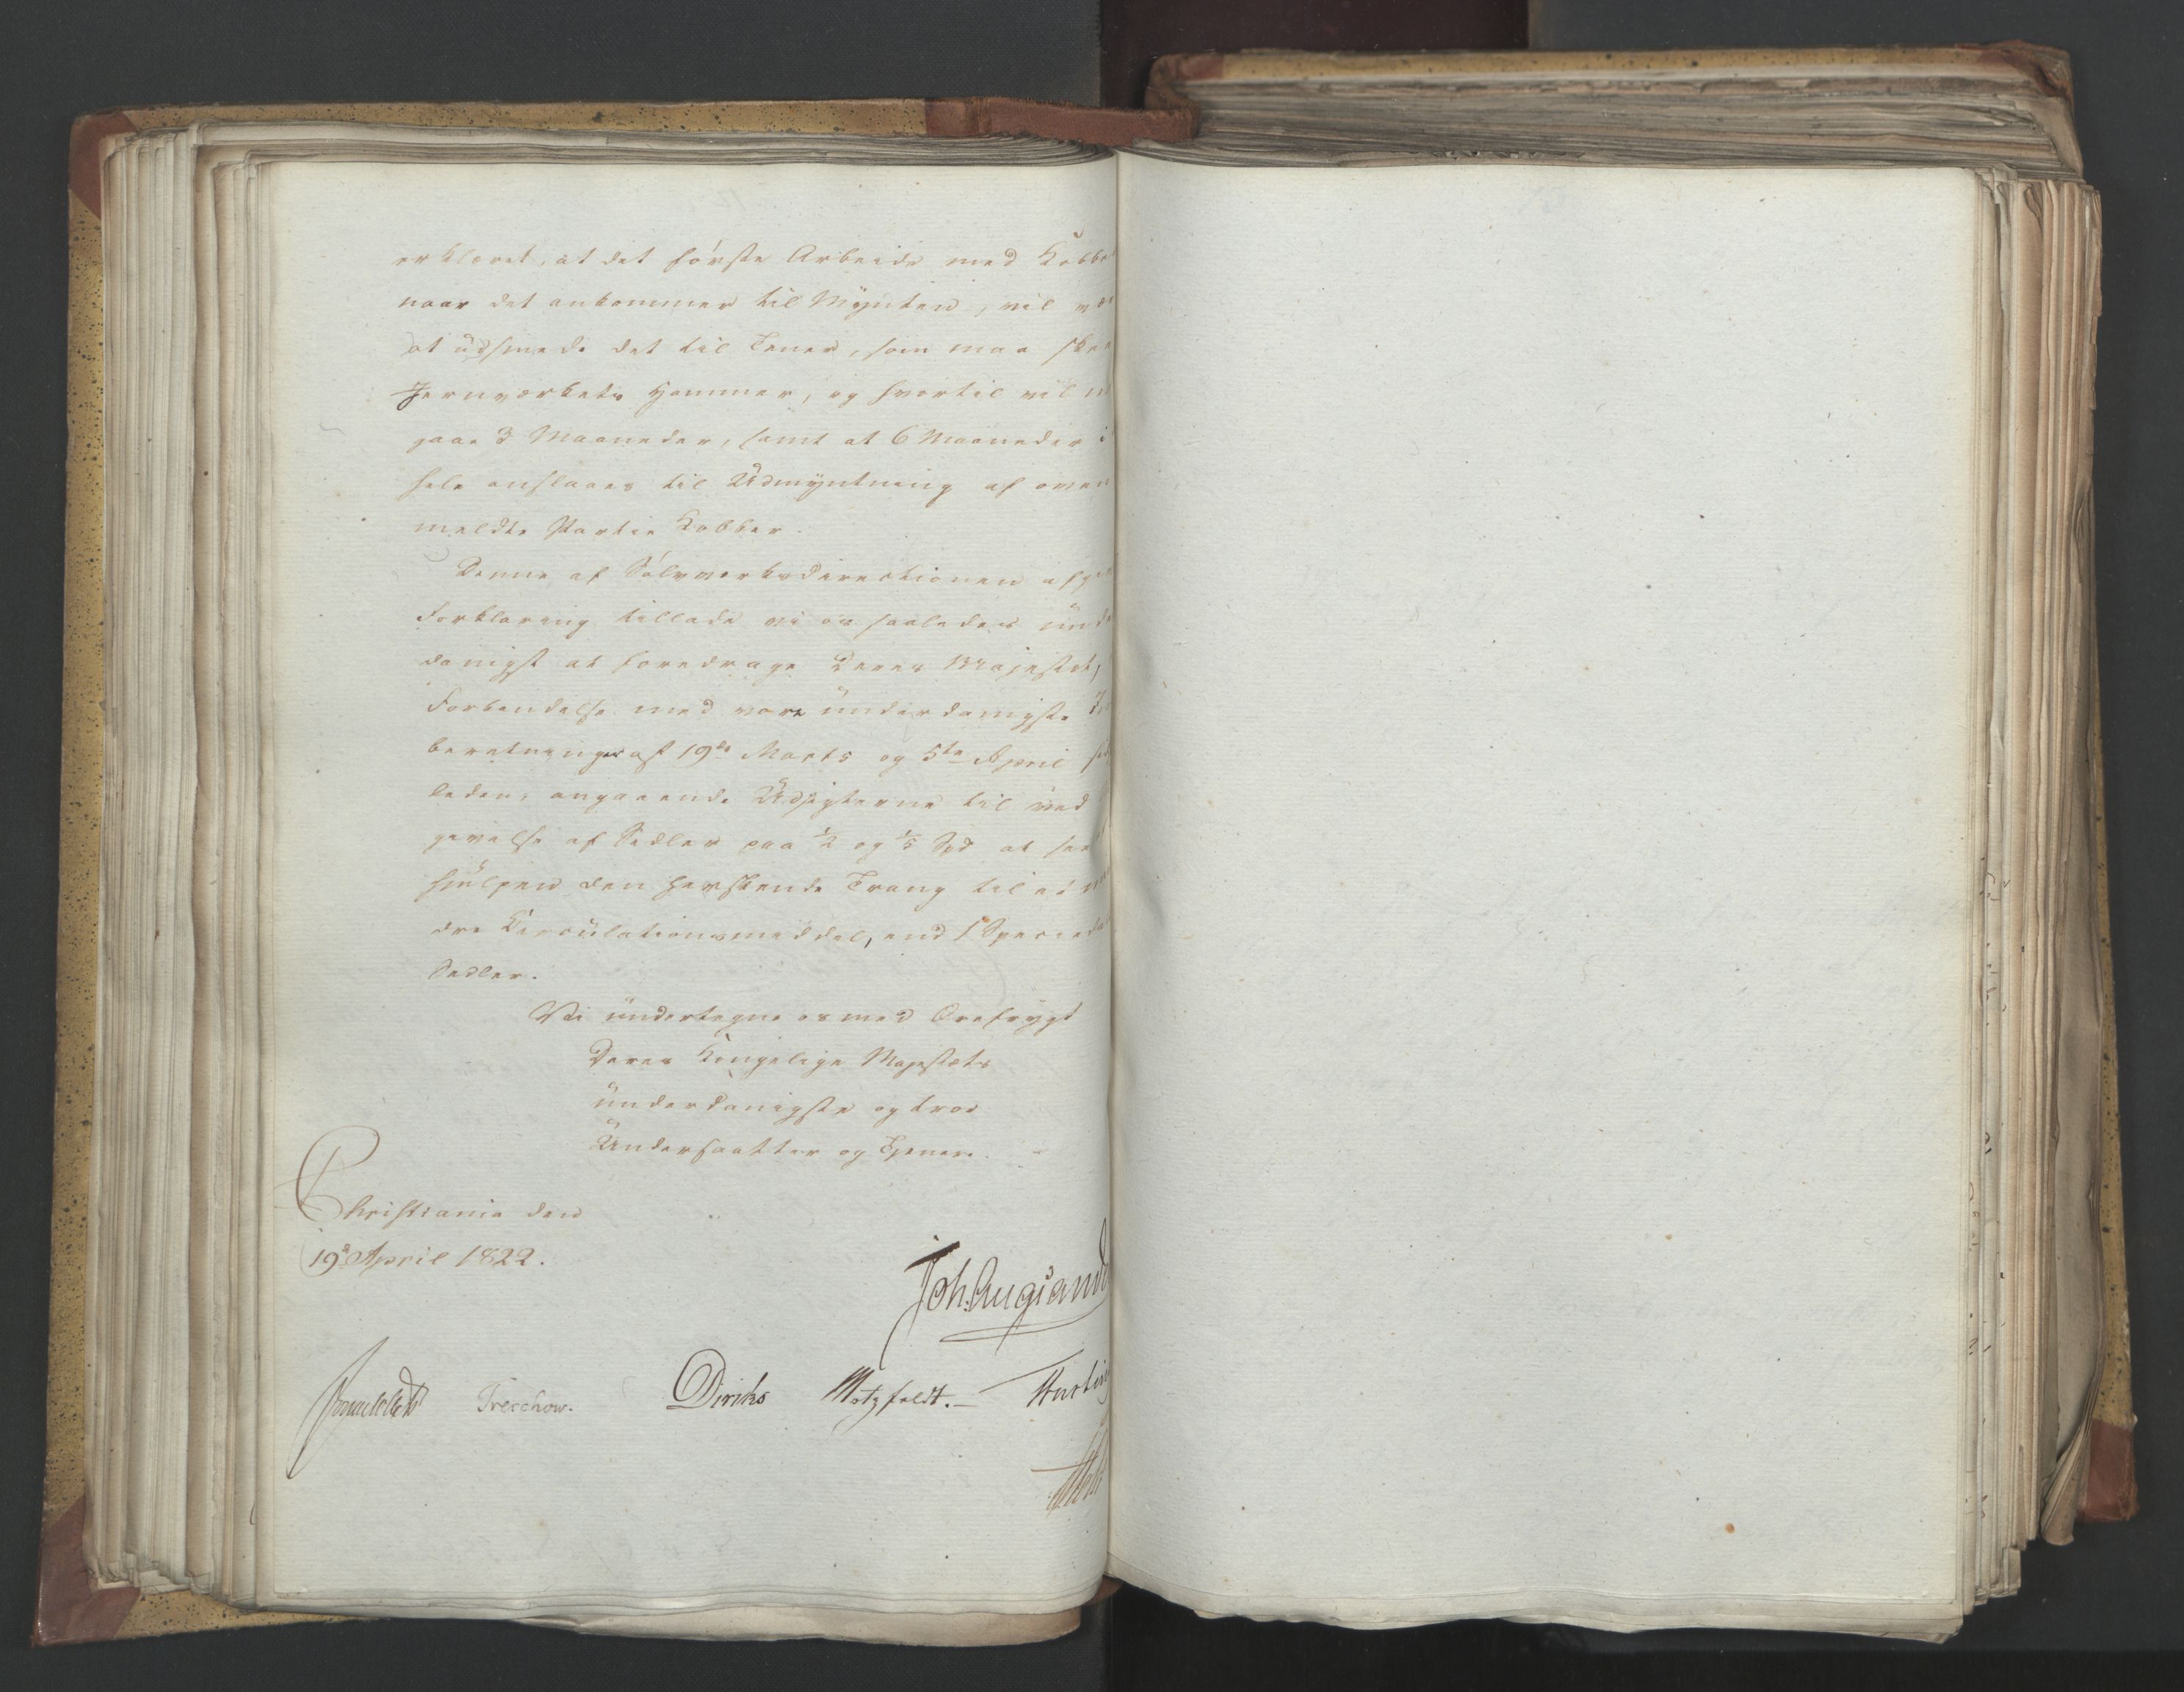 erklæret, at det første Arbeide med Kobbe
naar det ankommer til Mynten, vil væ
at udsmede det til Tener, som maa skee
Jernværkets Hammer, og hvortil vil
gaae 3 Maaneder, samt at 6 Maaneder i
hele anslaaes til Udmyntning af oven
meldte Partie Kobber.
Denne af Sølvværksdirectionen afgi
Forklaring tillade vi os saaledes unde
danigst at foredrage Deres Majestæt,
Forbindelse med vore underdanigste In
beretninger af 19de Marts og 5te April
leden, angaaende Udsigterne til ved
givelse af Sedler paa 1/2 og 1/5 Spd at see
hjulpen den herskende Trang til et
dre Circulationsmiddel, end 1 Specied
Sedler.
Vi undertegne os med Ærefrygt
Deres Kongelige Majestæts
underdanigste og troe
Undersaatter og Tjenere.
Christiania den
19de April 1822.
Joh. Aug: Sand
Sommerhielm Treschow. Diriks Motzfeldt. Fasting
Holst